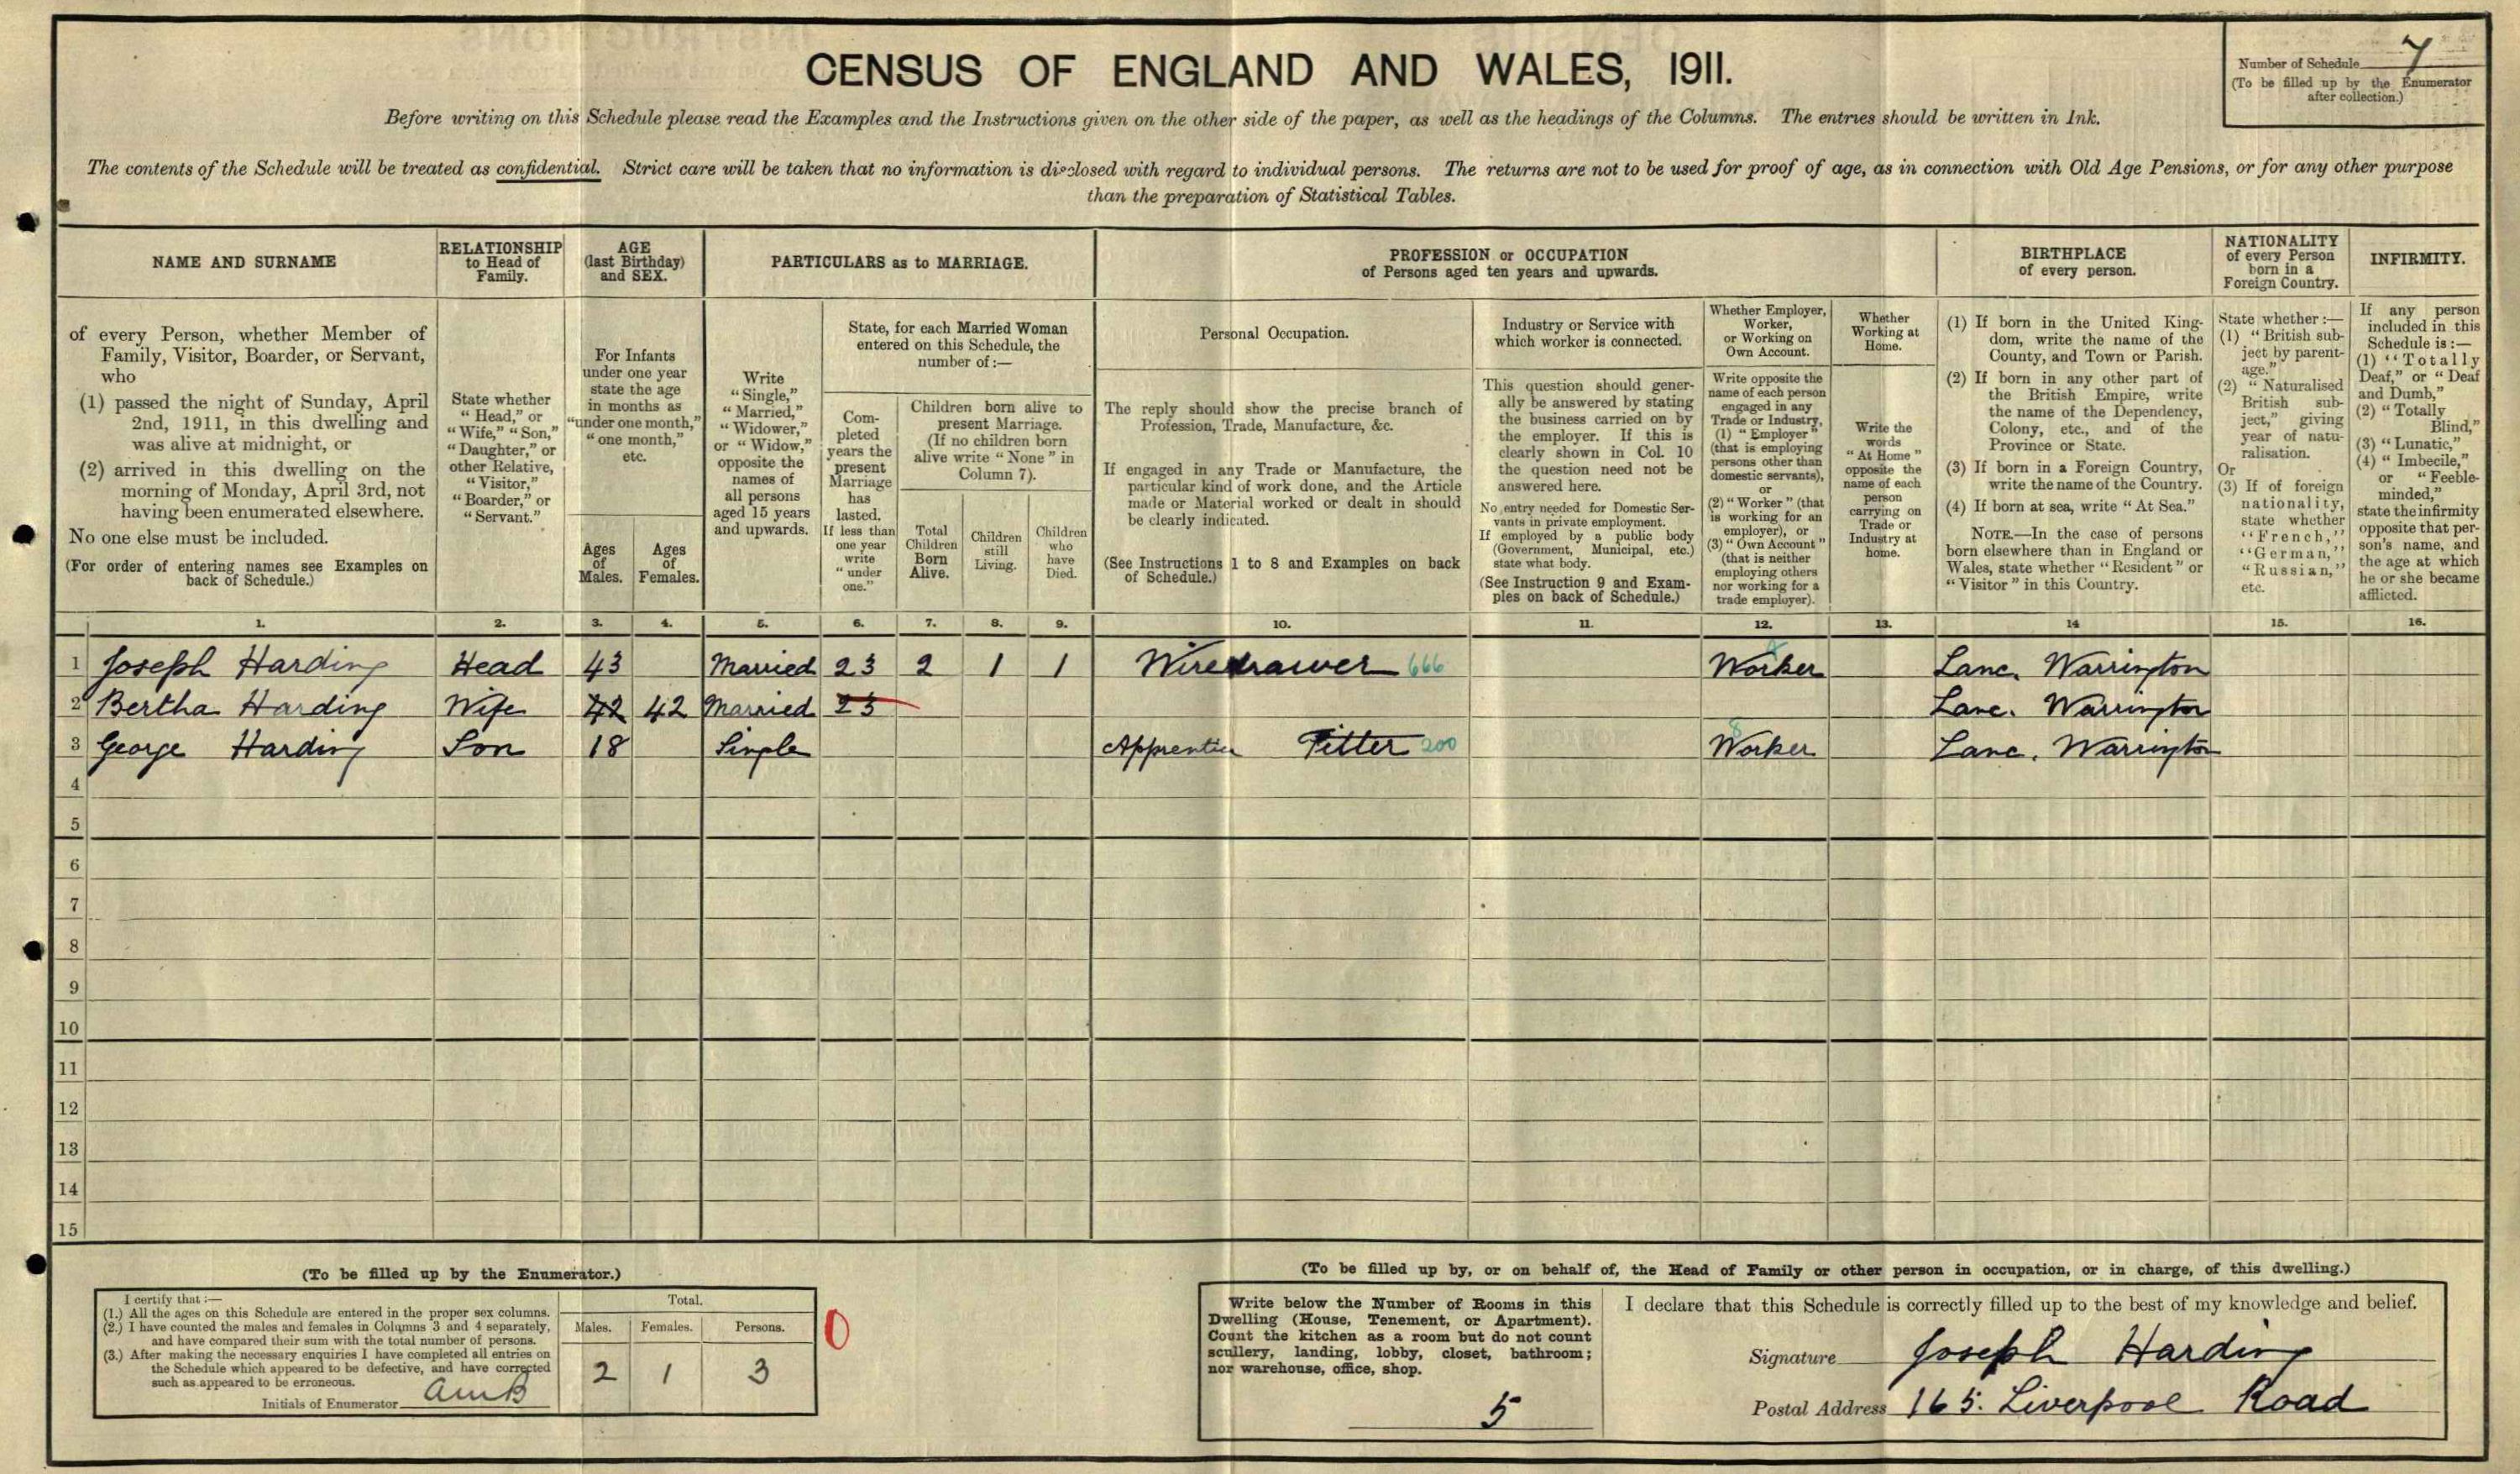 CENSUS OF ENGLAND AND WALES, 1911.
Number of Schedule 7
(To be filled up by the Enumerator
after collection.)
Before writing on this Schedule please read the Examples and the Instructions given on the other side of the paper, as well as the headings of the Columns. The entries should be written in Ink.
The contents of the Schedule will be treated as confidential. Strict care will be taken that no information is disclosed with regard to individual persons. The returns are not to be used for proof of age, as in connection with Old Age Pensions, or for any other purpose
than the preparation of Statistical Tables.
NAME AND SURNAME
of every Person, whether Member of
Family, Visitor, Boarder, or Servant,
who
(1) passed the night of Sunday, April
2nd, 1911, in this dwelling and
was alive at midnight, or
(2) arrived in this dwelling on the
morning of Monday, April 3rd, not
having been enumerated elsewhere.
No one else must be included.
(For order of entering names see Examples on
back of Schedule.)
RELATIONSHIP
to Head of
Family.
State whether
"Head," or
"Wife," "Son,"
"Daughter," or
other Relative,
"Visitor,"
"Boarder," or
"Servant."
AGE
(last Birthday)
and SEX.
For Infants
under one year
state the age
in months as
"under one month,"
"one month,"
etc.
Ages
of
Males.
Ages
of
Females.
PARTICULARS as to MARRIAGE.
Write
"Single,"
"Married,"
"Widower,"
or "Widow,"
opposite the
names of
all persons
aged 15 years
and upwards.
State, for each Married Woman
entered on this Schedule, the
number of:—
Com-
pleted
years the
present
Marriage
has
lasted.
If less than
one year
write
"under
one."
Children born alive to
present Marriage.
(If no children born
alive write "None" in
Column 7).
Total
Children
Born
Alive.
Children
still
Living.
Children
who
have
Died.
PROFESSION or OCCUPATION
of Persons aged ten years and upwards.
Personal Occupation.
The reply should show the precise branch of
Profession, Trade, Manufacture, &c.
If engaged in any Trade or Manufacture, the
particular kind of work done, and the Article
made or Material worked or dealt in should
be clearly indicated.
(See Instructions 1 to 8 and Examples on back
of Schedule.)
Industry or Service with
which worker is connected.
This question should gener-
ally be answered by stating
the business carried on by
the employer. If this is
clearly shown in Col. 10
the question need not be
answered here.
No entry needed for Domestic Ser-
vants in private employment.
If employed by a public body
(Government, Municipal, etc.)
state what body.
(See Instruction 9 and Exam-
ples on back of Schedule.)
Whether Employer,
Worker,
or Working on
Own Account.
Write opposite the
name of each person
engaged in any
Trade or Industry,
(1) "Employer"
(that is employing
persons other than
domestic servants),
or
(2) "Worker" (that
is working for an
employer), or
(3) "Own Account"
(that is neither
employing others
nor working for a
trade employer).
Whether
Working at
Home.
Write the
words
"At Home"
opposite the
name of each
person
carrying on
Trade or
Industry at
home.
BIRTHPLACE
of every person.
(1) If born in the United King-
dom, write the name of the
County, and Town or Parish.
(2) If born in any other part of
the British Empire, write
the name of the Dependency,
Colony, etc., and of the
Province or State.
(3) If born in a Foreign Country,
write the name of the Country.
(4) If born at sea, write "At Sea."
NOTE.—In the case of persons
born elsewhere than in England or
Wales, state whether "Resident" or
"Visitor" in this Country.
NATIONALITY
of every Person
born in a
Foreign Country.
State whether:—
(1) "British sub-
ject by parent-
age."
(2) "Naturalised
British sub-
ject," giving
year of natu-
ralisation.
Or
(3) If of foreign
nationality,
state whether
"French,"
"German,"
"Russian,"
etc.
INFIRMITY.
If any person
included in this
Schedule is:—
(1) "Totally
Deaf," or "Deaf
and Dumb,"
(2) "Totally
Blind,"
(3) "Lunatic,"
(4) "Imbecile,"
or "Feeble-
minded,"
state the infirmity
opposite that per-
son's name, and
the age at which
he or she became
afflicted.
1. 2. 3. 4. 5. 6. 7. 8. 9. 10. 11. 12. 13. 14 15. 16.
1 Joseph Harding Head 43 Married 23 2 1 1 Wiredrawer 666 Worker Lanc. Warrington
2 Bertha Harding Wife 42 42 Married 23 Lanc. Warrington
3 George Harding Son 18 Single Apprentice Fitter 200 Worker Lanc. Warrington
4
5
6
7
8
9
10
11
12
13
14
15
(To be filled up by the Enumerator.)
I certify that:—
(1.) All the ages on this Schedule are entered in the proper sex columns.
(2.) I have counted the males and females in Columns 3 and 4 separately,
and have compared their sum with the total number of persons.
(3.) After making the necessary enquiries I have completed all entries on
the Schedule which appeared to be defective, and have corrected
such as appeared to be erroneous.
Initials of Enumerator
Total.
Males. Females. Persons.
2 1 3
0
(To be filled up by, or on behalf of, the Head of Family or other person in occupation, or in charge, of this dwelling.)
Write below the Number of Rooms in this
Dwelling (House, Tenement, or Apartment).
Count the kitchen as a room but do not count
scullery, landing, lobby, closet, bathroom;
nor warehouse, office, shop.
5
I declare that this Schedule is correctly filled up to the best of my knowledge and belief.
Signature Joseph Harding
Postal Address 165. Liverpool Road